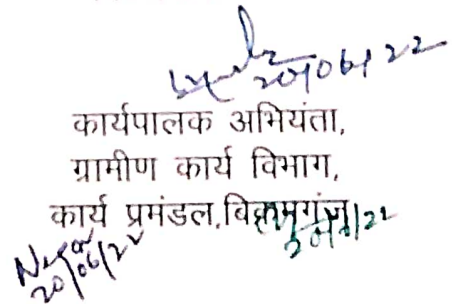 20/06/22
कार्यपालक अभियंता,
ग्रामीण कार्य विभाग,
कार्य प्रमंडल,विक्रमगंज
20/06/22